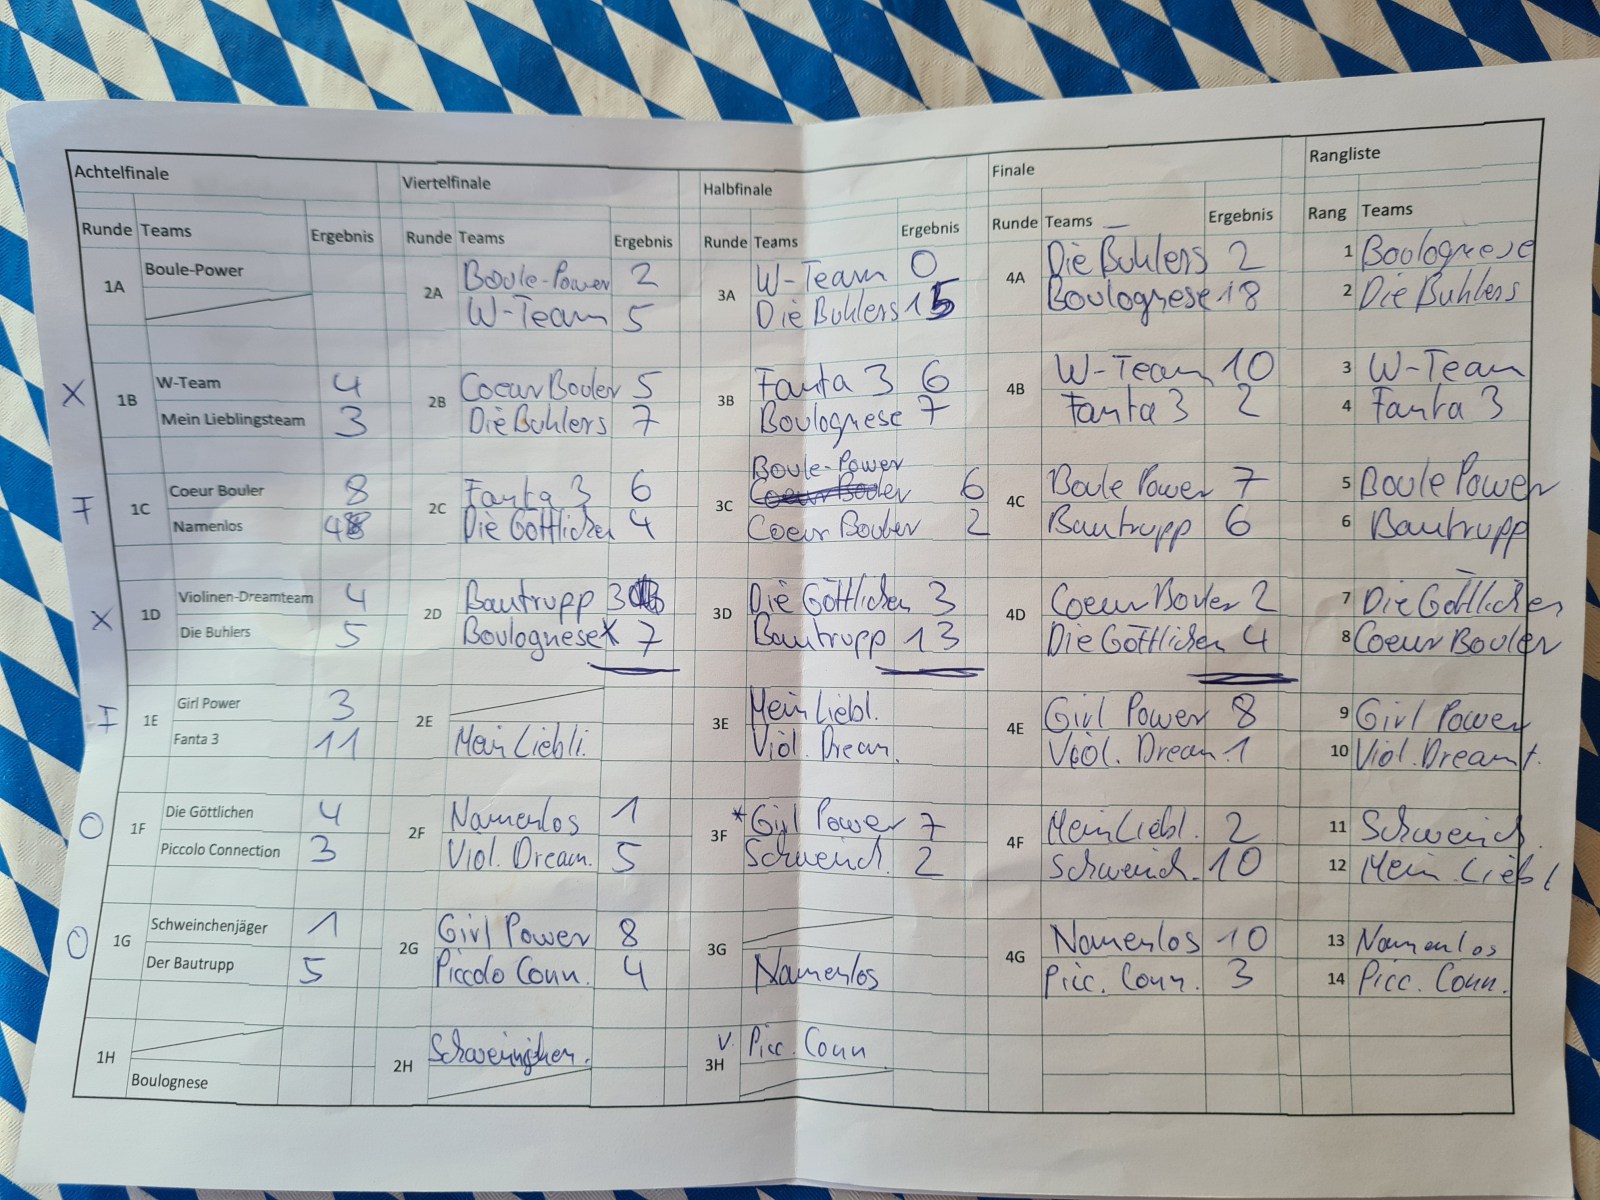 Achtelfinale
Runde Teams Ergebnis
1A Boule-Power
X 1B W-Team 4
Mein Lieblingsteam 3
I 1C Coeur Bouler 8
Namenlos 4
X 1D Violinen-Dreamteam 4
Die Buhlers 5
I 1E Girl Power 3
Fanta 3 11
O 1F Die Göttlichen 4
Piccolo Connection 3
O 1G Schweinchenjäger 1
Der Bautrupp 5
1H
Boulognese
Viertelfinale
Runde Teams Ergebnis
2A Boule-Power 2
W-Team 5
2B Coeur Bouler 5
Die Buhlers 7
2C Fanta 3 6
Die Göttlichen 4
2D Bautrupp 3
Boulognese X 7
2E
Mein Liebli.
2F Namenlos 1
Viol. Dream. 5
2G Girl Power 8
Piccolo Conn. 4
2H
Halbfinale
Runde Teams Ergebnis
3A W-Team 0
Die Buhlers 15
3B Fanta 3 6
Boulognese 7
Boule-Power
3C Coeur Bouler 6
Coeur Bouler 2
3D Die Göttlichen 3
Bautrupp 13
3E Mein Liebl.
Viol. Dream.
3F *Girl Power 7
Schweinch. 2
3G
Namenlos
V. Picc. Conn
3H
Finale
Runde Teams Ergebnis
4A Die Buhlers 2
Boulognese 18
4B W-Team 10
Fanta 3 2
4C Boule Power 7
Bautrupp 6
4D Coeur Bouler 2
Die Göttlichen 4
4E Girl Power 8
Viol. Dream. 1
4F Mein Liebl. 2
Schweinch. 10
4G Namenlos 10
Picc. Conn. 3
Rangliste
Rang Teams
1 Boulognese
2 Die Buhlers
3 W-Team
4 Fanta 3
5 Boule Power
6 Bautrupp
7 Die Göttlichen
8 Coeur Bouler
9 Girl Power
10 Viol. Dreamt.
11 Schweinch.
12 Mein Liebl
13 Namenlos
14 Picc. Conn.